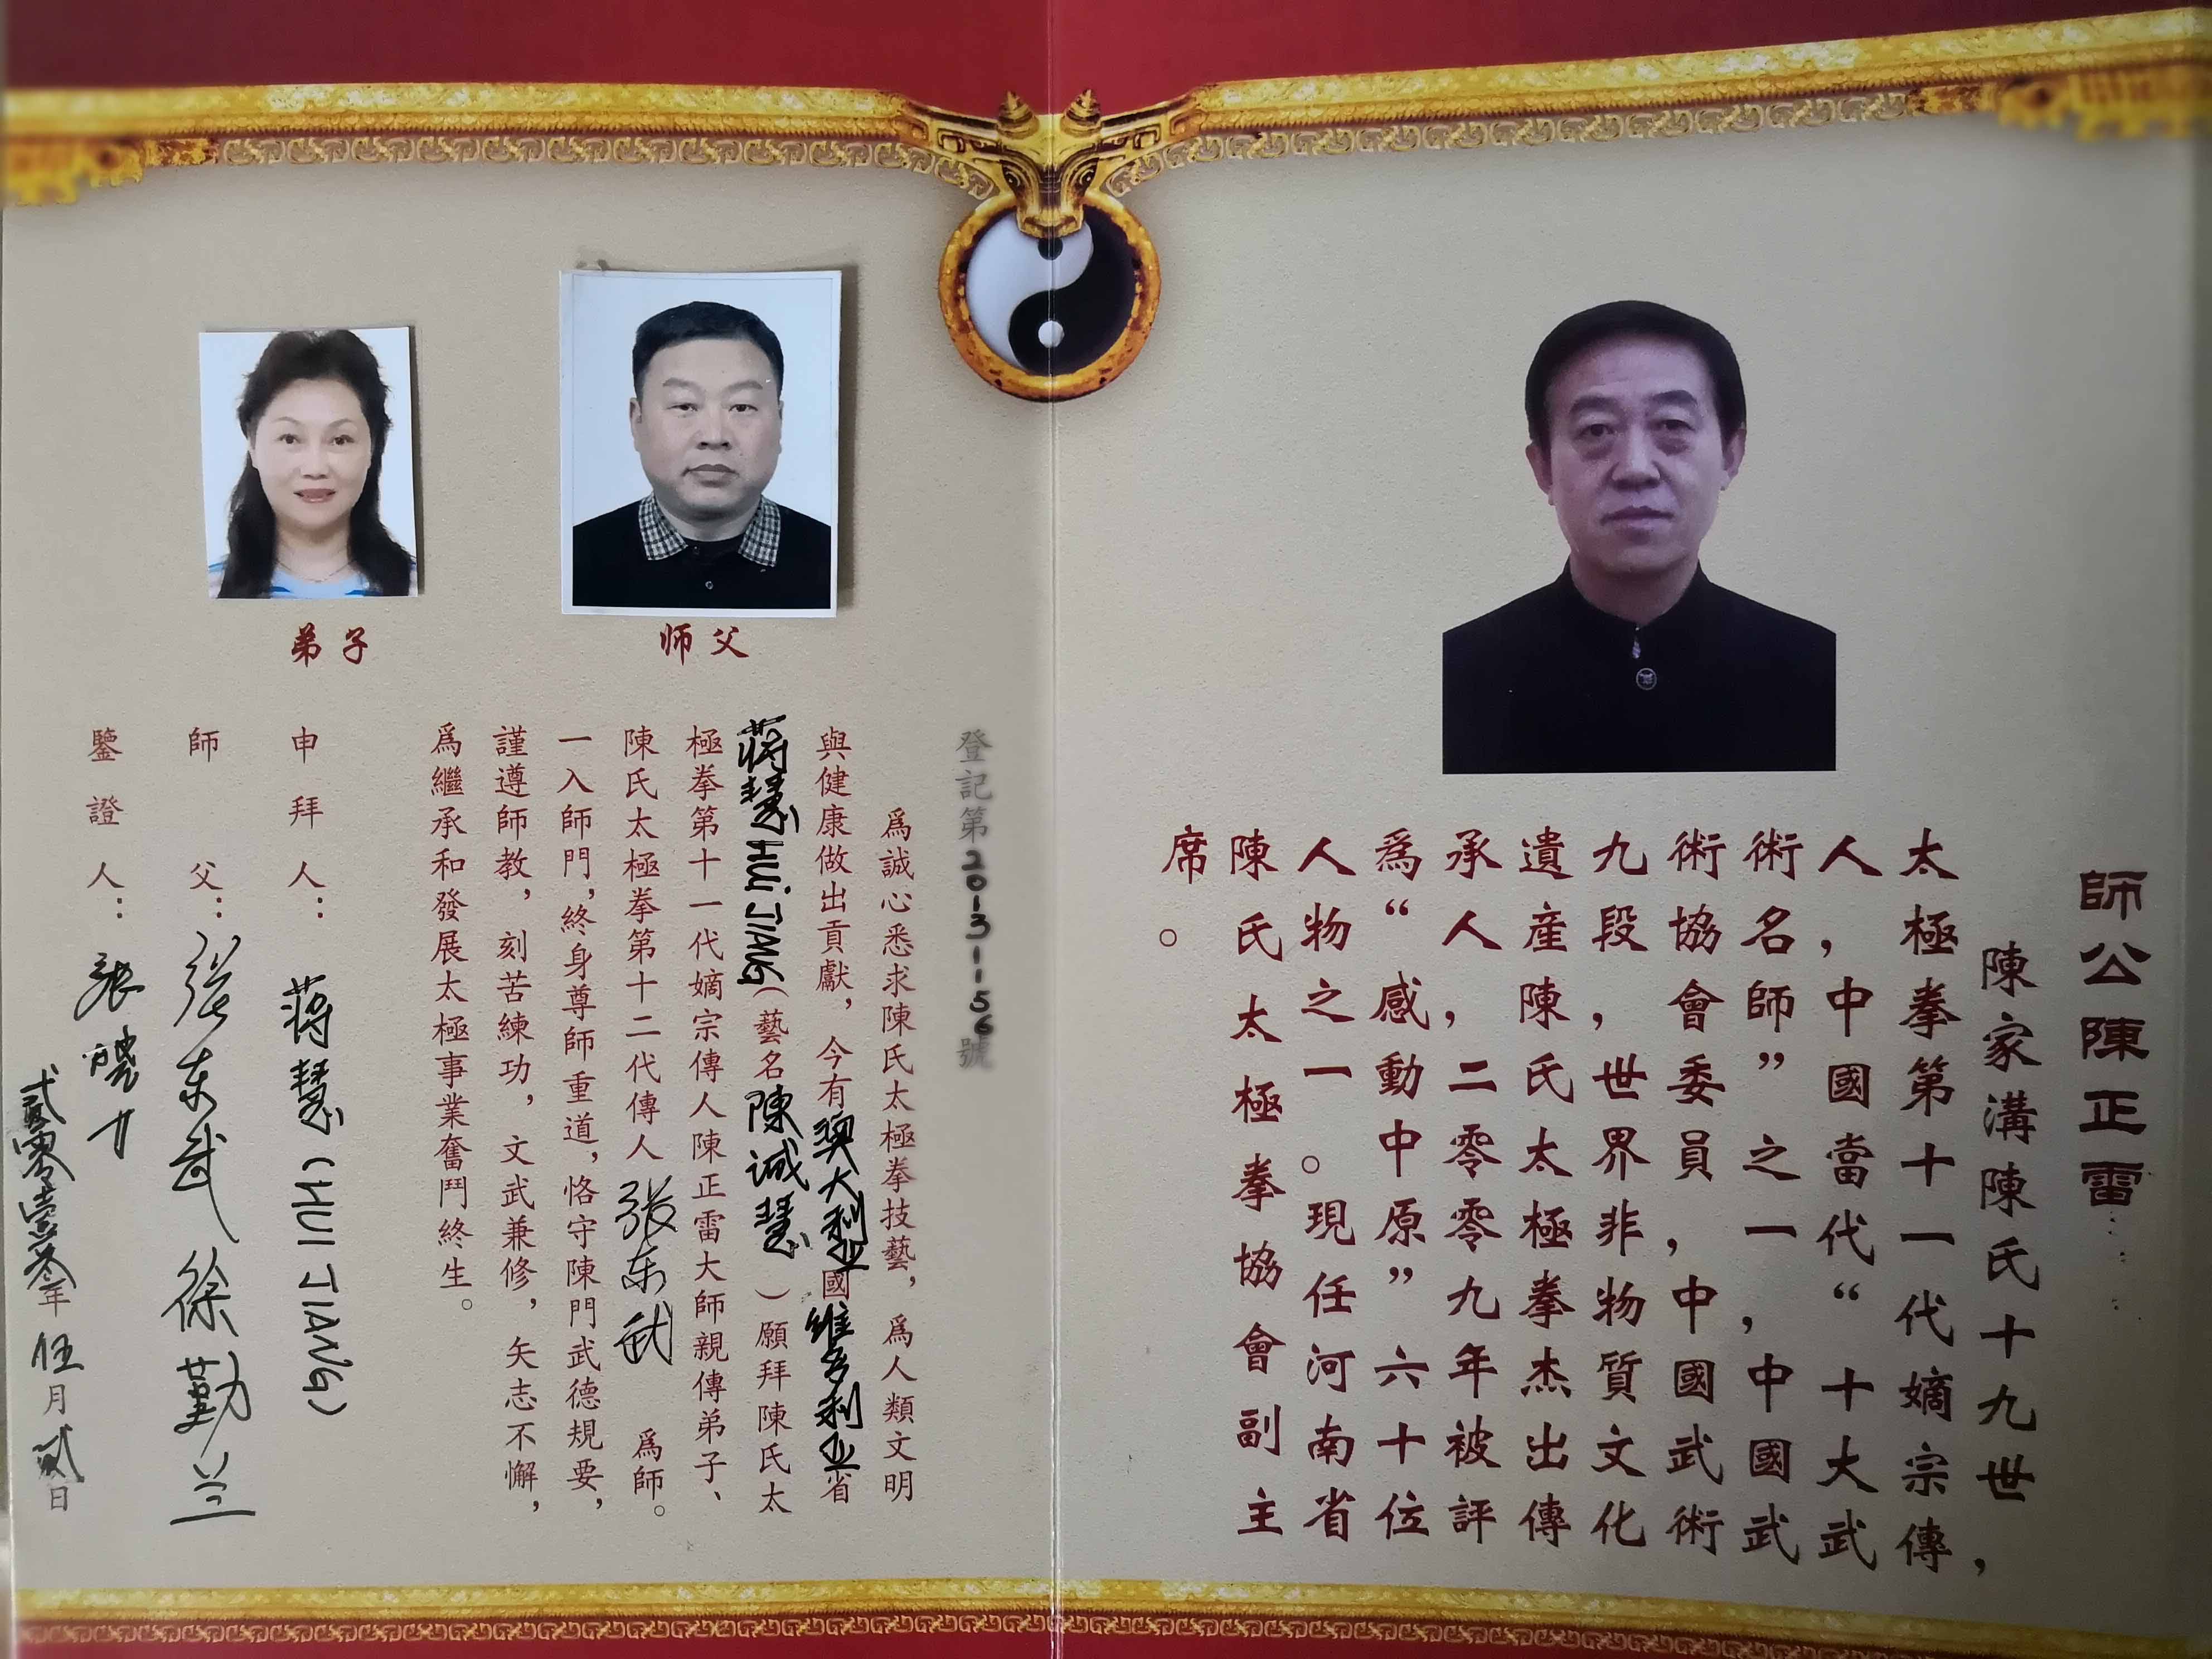 師公陳正雷
陳家溝陳氏十九世，
太極拳第十一代嫡宗傳
人，中國當代“十大武
術名師”之一，中國武
術協會委員，中國武術
九段，世界非物質文化
遺產陳氏太極拳杰出傳
承人，二零零九年被評
爲“感動中原”六十位
人物之一。現任河南省
陳氏太極拳協會副主
席。
弟子
师父
登記第20131156號
爲誠心悉求陳氏太極拳技藝，爲人類文明
與健康做出貢獻，今有澳大利亚國维多利亚省
蒋慧HUI JIANG（藝名陳诚慧）願拜陳氏太
極拳第十一代嫡宗傳人陳正雷大師親傳弟子、
陳氏太極拳第十二代傳人张东武爲師。
一入師門，終身尊師重道，恪守陳門武德規要，
謹遵師教，刻苦練功，文武兼修，矢志不懈，
爲繼承和發展太極事業奮鬥終生。
申拜人：蒋慧(HUI JIANG)
師父：张东武 徐勤兰
鑒證人：张
贰零壹叁年伍月贰日